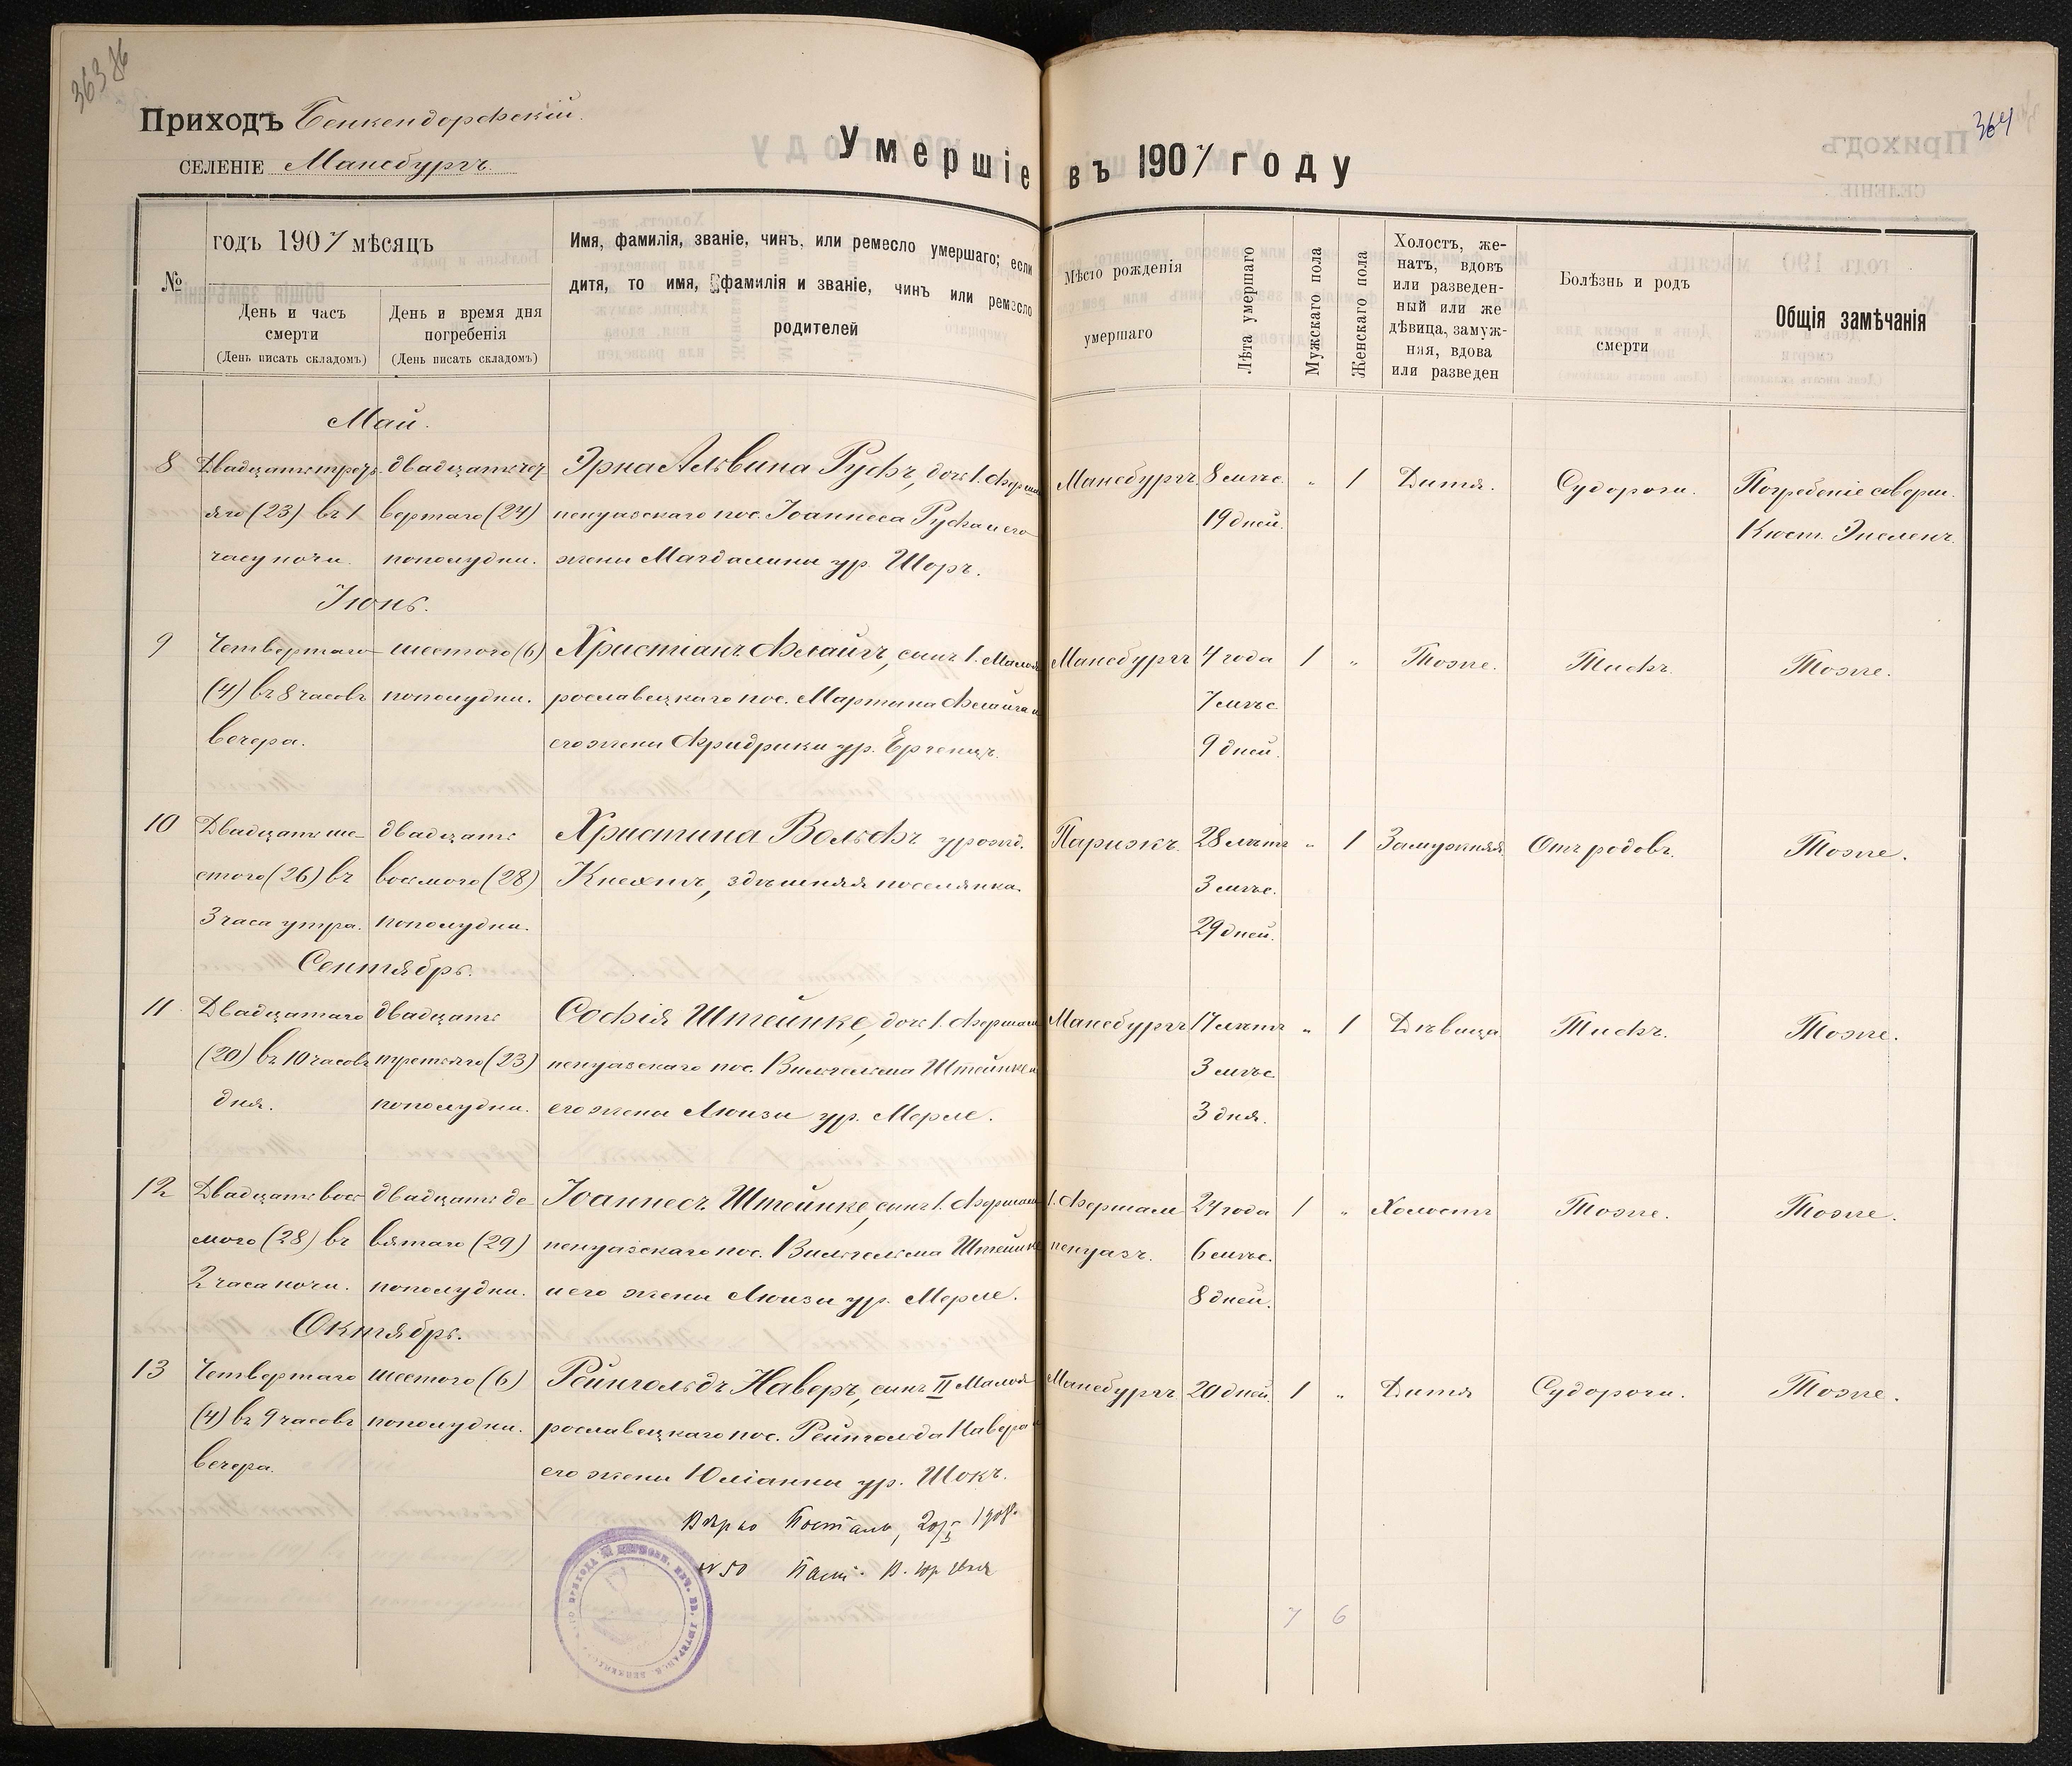 363 36
364
Приходъ Бенкендорфскій.
СЕЛЕНІЕ Мансбургъ.
Умершіе въ 1907 году
№
годъ 1907 мѣсяцъ
День и часъ
смерти
(День писать складомъ)
День и время дня
погребенія
(День писать складомъ)
Имя, фамилія, званіе, чинъ, или ремесло умершаго; если
дитя, то имя, фамилія и званіе, чинъ или ремесло
родителей
Мѣсто рожденія
умершаго
Лѣта умершаго
Мужскаго пола
Женскаго пола
Холостъ, же-
натъ, вдовъ
или разведен-
ный или же
дѣвица, замуж-
няя, вдова
или разведен
Болѣзнь и родъ
смерти
Общія замѣчанія
Май.
8 Двадцатьтреть- двадцатьчет Эрна Альвина Руфъ, дочь 1. Фершам Мансбургъ 8 мѣс. " 1 Дитя. Судороги. Погребеніе соверш.
яго (23) въ 1 вертаго (24) пенуазскаго пос. Іоаннеса Руфа и его 19 дней. Кюст. Энсленъ.
часу ночи. пополудни. жены Магдалины ур. Шоръ.
Іюнь.
9 Четвертаго шестого (6) Христіанъ Флайгъ, сынъ 1. Малоя Мансбургъ 4 года 1 " Тоже. Тифъ. Тоже.
(4) въ 8 часовъ пополудни. рославецкаго пос. Мартина Флайга и 7 мѣс.
вечера. его жены Фридрики ур. Ергенцъ. 9 дней.
10 Двадцать ше- двадцать Христина Вольфъ урожд. Парижъ. 28 лѣтъ " 1 Замужняя Отъ родовъ. Тоже.
стого (26) въ восьмого (28) Кнехтъ, здѣшняя поселянка. 3 мѣс.
3 часа утра. пополудни. 29 дней.
Сентябрь.
11 Двадцатаго двадцать Софія Штейнке, дочь 1. Фершам Мансбургъ 17 лѣтъ " 1 Дѣвица Тифъ. Тоже.
(20) въ 10 часовъ третьяго (23) пенуазскаго пос. Вильгельма Штейнке и 3 мѣс.
дня. пополудни. его жены Люизы ур. Мерле. 3 дня.
12 Двадцать вось- двадцать де- Іоаннесъ Штейнке, сынъ 1. Фершам 1. Фершам 24 года 1 " Холостъ Тоже. Тоже.
мого (28) въ вятаго (29) пенуазскаго пос. Вильгельма Штейнке пенуазъ. 6 мѣс.
2 часа ночи. пополудни. и его жены Люизы ур. Мерле. 8 дней.
Октябрь.
13 Четвертаго шестого (6) Рейнгольдъ Наверъ, сынъ II Малоя Мансбургъ 20 дней. 1 " Дитя Судороги. Тоже.
(4) въ 9 часовъ пополудни. рославецкаго пос. Рейнгольда Навера и
вечера. его жены Юліанны ур. Шокъ.
Вѣрно 1908.
№ 50 Паст. В.
7 6